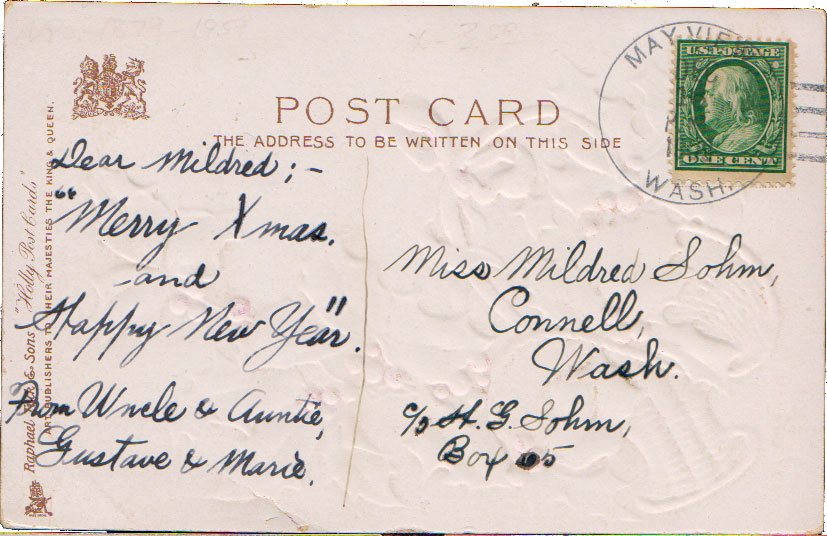 MAY VIEW
WASH.
U.S. POSTAGE
ONE CENT
POST CARD
THE ADDRESS TO BE WRITTEN ON THIS SIDE
Dear Mildred;-
"Merry Xmas.
-and
Happy New Year".
From Uncle & Auntie,
Gustave & Marie.
Miss Mildred Sohm,
Connell,
Wash.
c/o H. G. Sohm,
Box 65
Raphael Tuck & Sons "Holly Post Cards"
ART PUBLISHERS TO THEIR MAJESTIES THE KING & QUEEN.